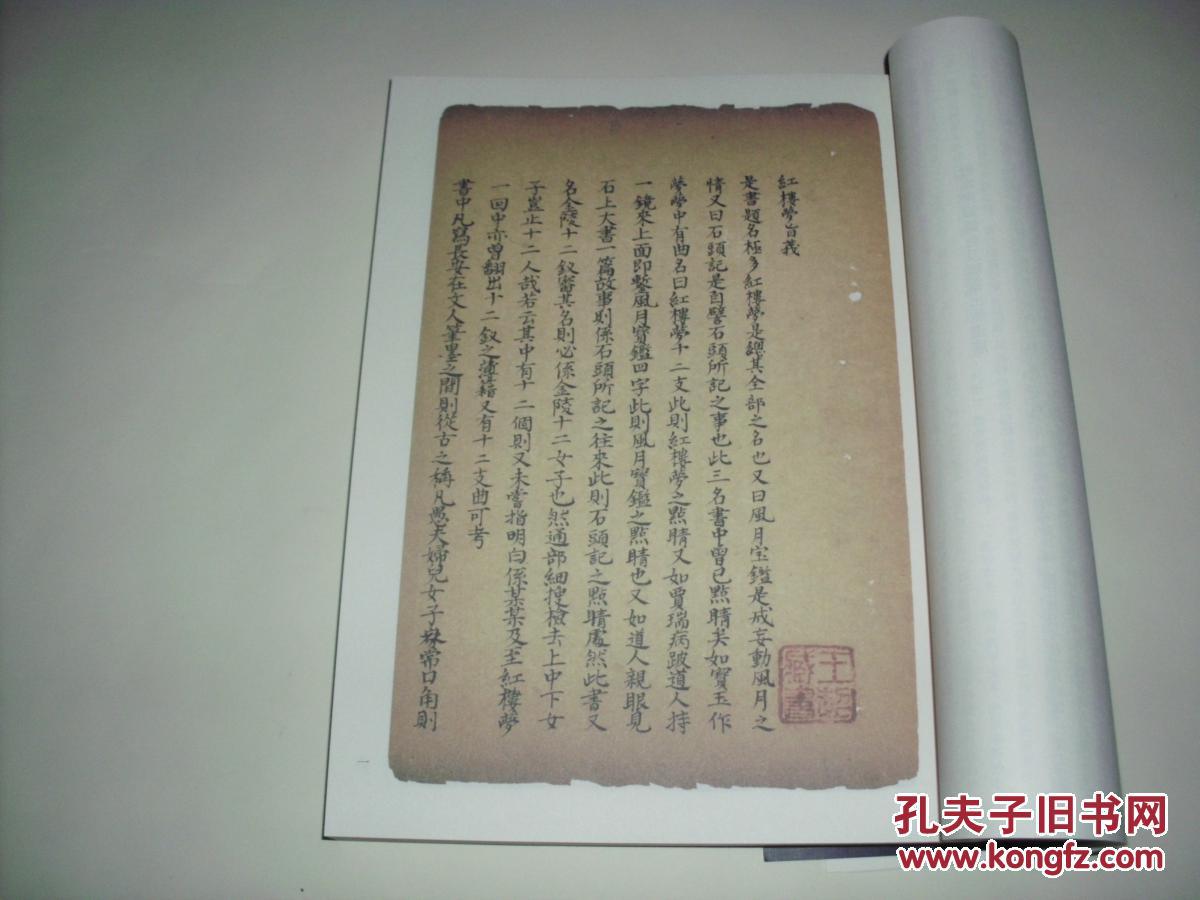 紅樓夢旨義
是書題名極多紅樓夢是總其全部之名也又曰風月宝鑑是戒妄動風月之
情又曰石頭記是自譬石頭所記之事也此三名書中曾已點睛矣如寶玉作
夢夢中有曲名曰紅樓夢十二支此則紅樓夢之點睛又如賈瑞病跛道人持
一鏡來上面即鏨風月寶鑑四字此則風月寶鑑之點睛也又如道人親眼見
石上大書一篇故事則係石頭所記之往來此則石頭記之點睛處然此書又
名金陵十二釵審其名則必係金陵十二女子也然通部細搜檢去上中下女
子豈止十二人哉若云其中有十二個則又未嘗指明白係某某及至紅樓夢
一回中亦曾翻出十二釵之薄籍又有十二支曲可考
書中凡寫長安在文人筆墨之間則從古之稱凡愚夫婦兒女子家常口角則
一
孔夫子旧书网
www.kongfz.com